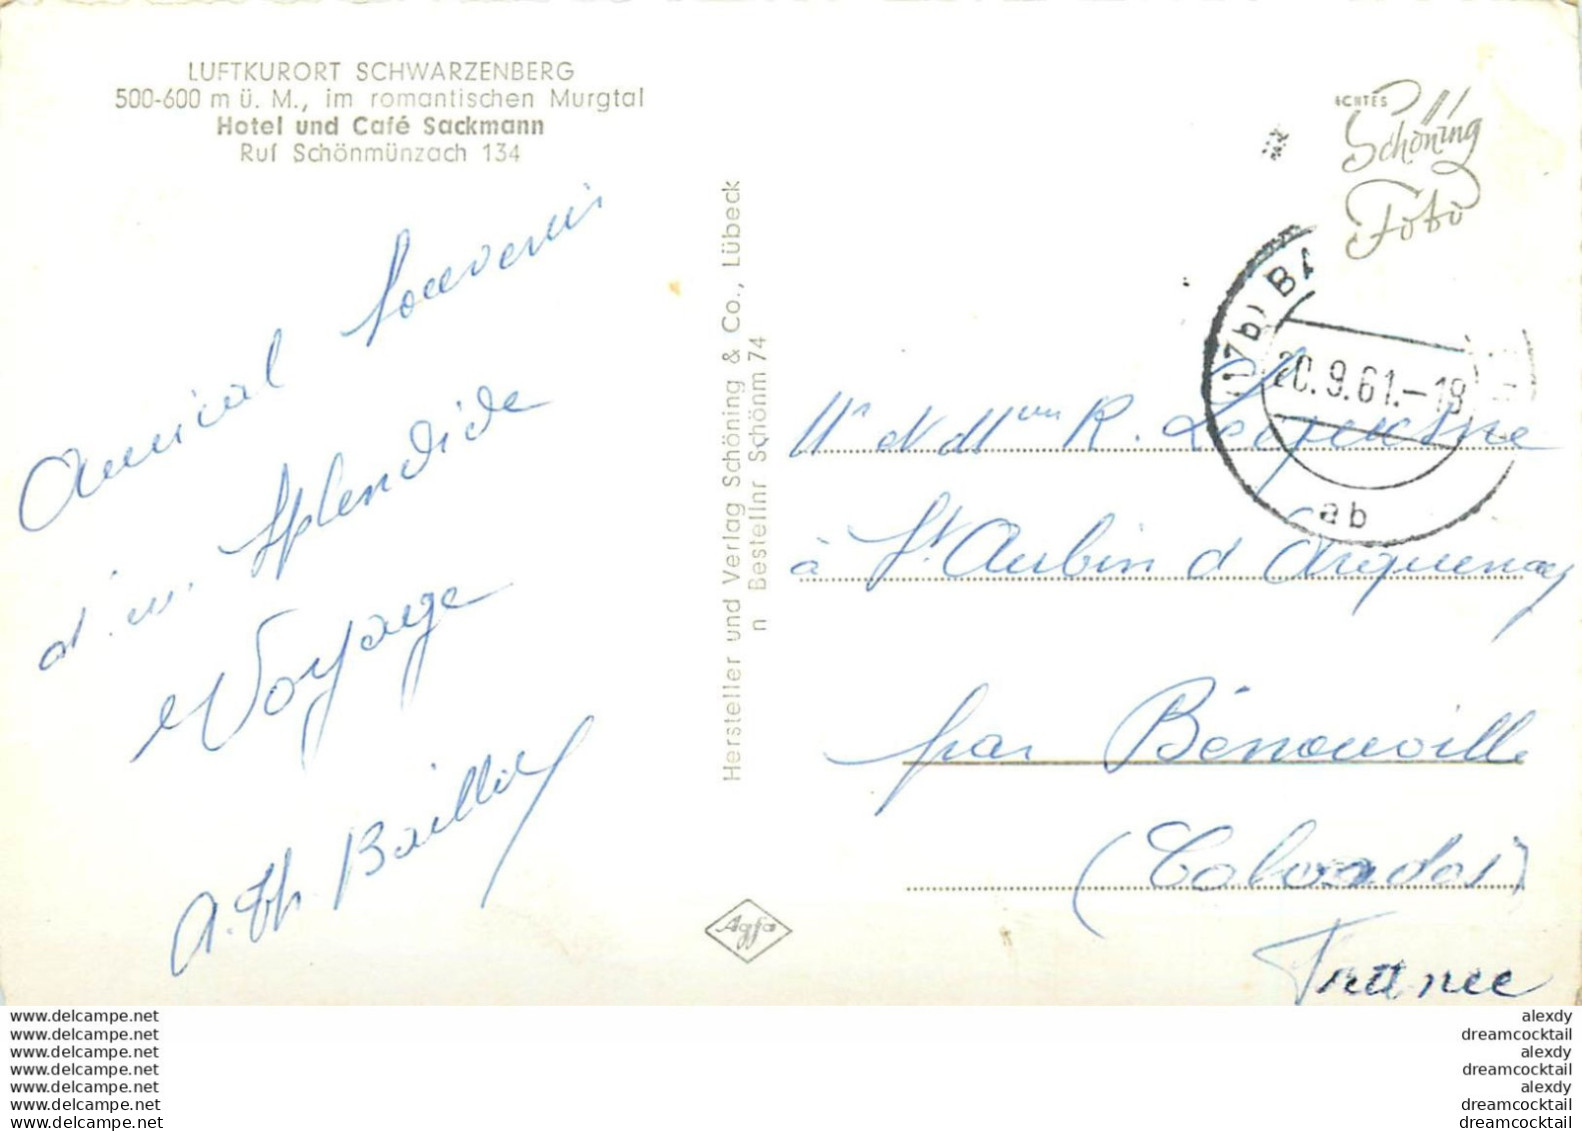 LUFTKURORT SCHWARZENBERG
500-600 m ü. M., im romantischen Murgtal
Hotel und Café Sackmann
Ruf Schönmünzach 134
Amical Souvenir
d'un splendide
Voyage
A. Th Bailly
Hersteller und Verlag Schöning & Co., Lübeck
n Bestellnr Schönm 74
Agfa
ECHTES
Schöning
Foto
(17b) BA
20.9.61.-18
ab
Mr et Mme R.
à St Aubin d'Arquenay
par Bénouville
(Calvados)
France
www.delcampe.net
www.delcampe.net
www.delcampe.net
www.delcampe.net
www.delcampe.net
www.delcampe.net
www.delcampe.net
alexdy
dreamcocktail
alexdy
dreamcocktail
alexdy
dreamcocktail
dreamcocktail